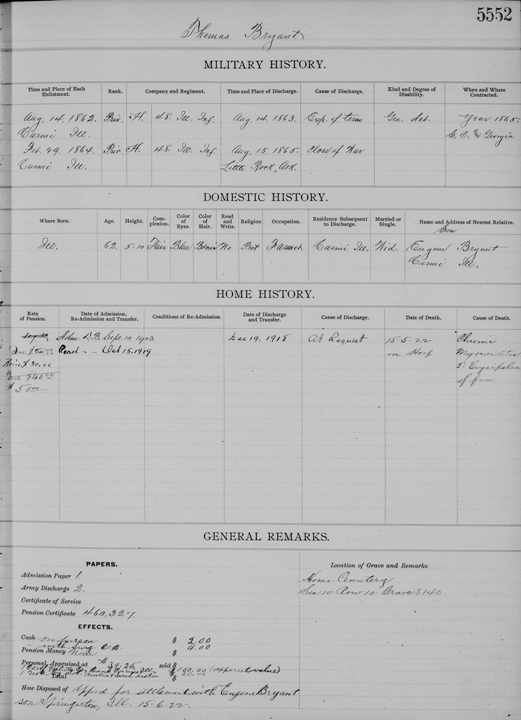 5552
Thomas Bryant
MILITARY HISTORY.
Time and Place of Each Enlistment. Rank. Company and Regiment. Time and Place of Discharge. Cause of Discharge. Kind and Degree of Disability. When and Where Contracted.
Aug. 14. 1862. Pri. H. 48. Ill. Inf. Aug. 14. 1863. Exp. of term Gen. deb. Year 1865.
Carmi Ill.
Feb. 29. 1864. Pri. H. 48. Ill. Inf. Aug. 15. 1865. Close of War
Carmi Ill. Little Rock, Ark.
DOMESTIC HISTORY.
Where Born. Age. Height. Complexion. Color of Eyes. Color of Hair. Read and Write. Religion Occupation. Residence Subsequent to Discharge. Married or Single. Name and Address of Nearest Relative.
Son
Ill. 62. 5-10 Fair Blue No Prot Carmi Ill. Wid. Eugene Bryant
Carmi Ill.
HOME HISTORY.
Rate of Pension. Date of Admission, Re-Admission and Transfer. Conditions of Re-Admission. Date of Discharge and Transfer. Cause of Discharge. Date of Death. Cause of Death.
Adm. D.B. Sept. 10 1903 Dec 19. 1918 At Request 15-5-22 Chronic
Read - - Oct 15. 1919 in Hosp
GENERAL REMARKS.
PAPERS.
Admission Paper 1
Army Discharge 2.
Certificate of Service
Pension Certificate 460,327
EFFECTS.
Cash $ 2.00
Pension Money $
Personal, Appraised at sold $
Total $
How Disposed of Appd for settlement with Eugene Bryant
son Springerton, Ill. 15-6-22.
Location of Grave and Remarks
Home Cemetery
Sec 10 Row 10 Grave 3140